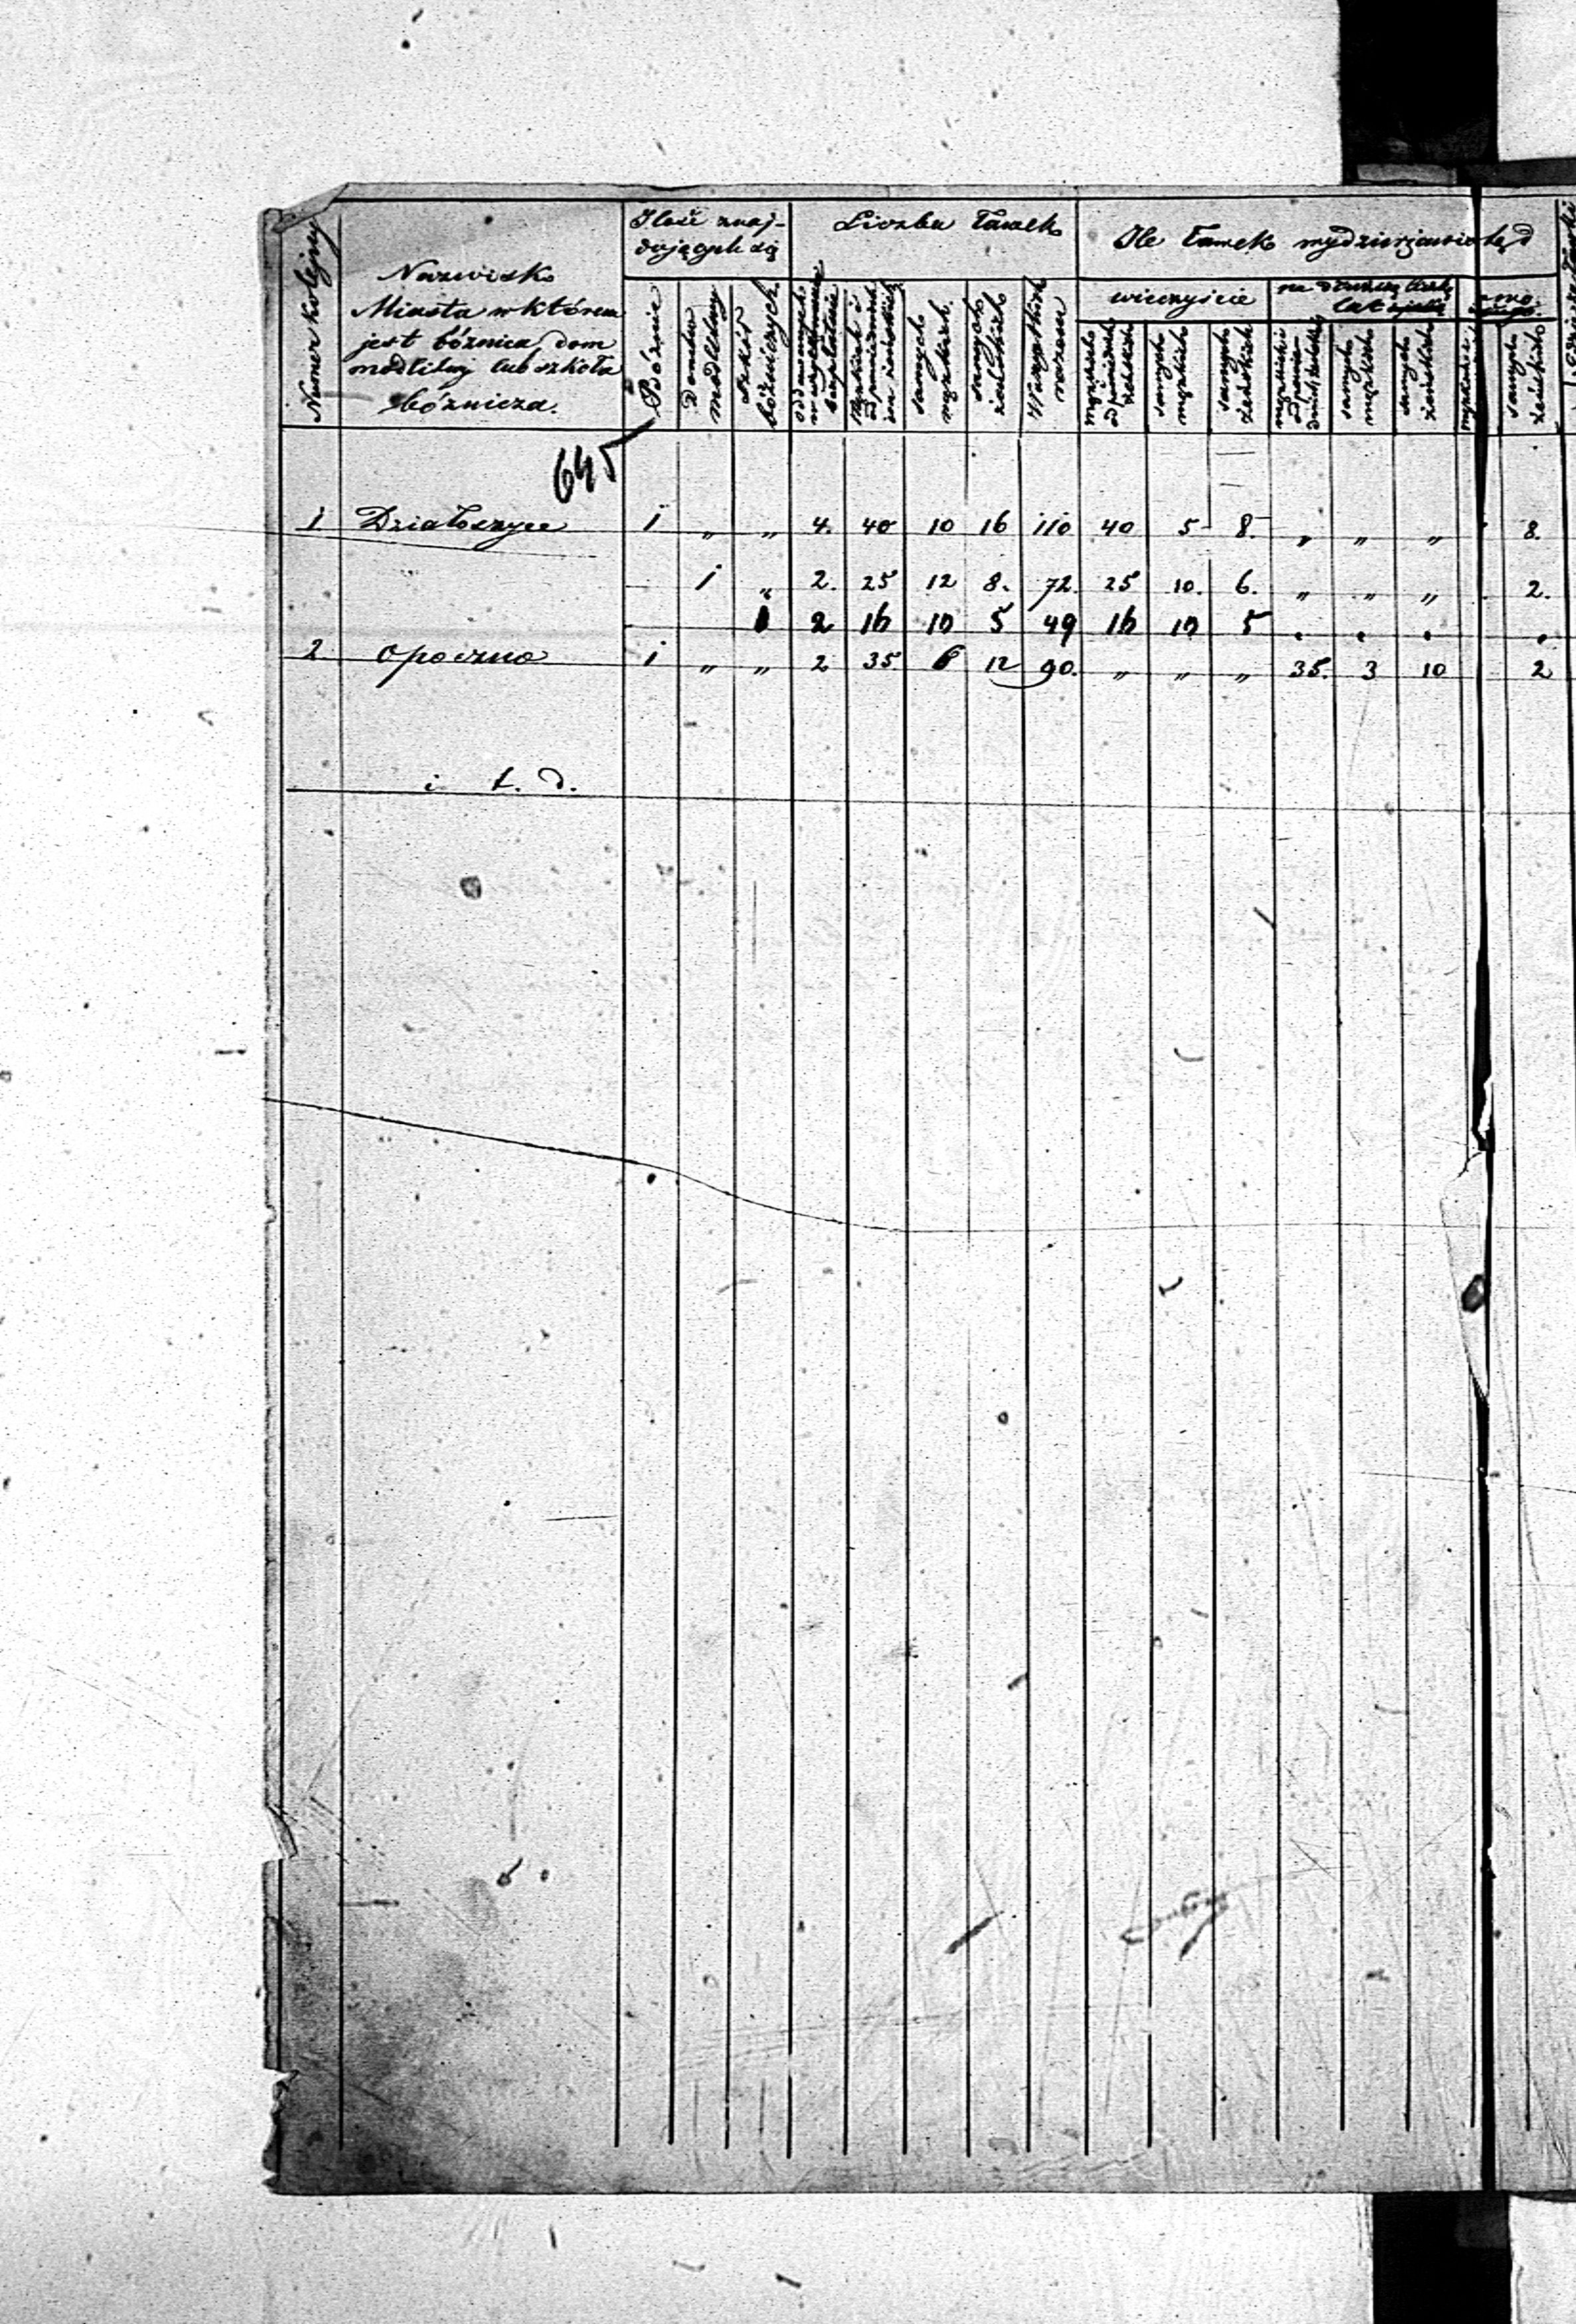 Numer kolejny
Nazwisko
Miasta w którem
jest bóżnica, dom
modlitwy lub szkoła
bóżnicza.
Ilość znaj-
dujących się
Bóżnic
Domów
modlitwy
Szkół
bóżniczych
Liczba Ławek
oddanych
bezpłatnie
męzkich i
samych
męzkich
samych
żeńskich
Wszystkich
razem
Ile Ławek wydzierżawio
wieczyście
męzkich
żeńskich
samych
męzkich
samych
żeńskich
na dłuższą liczbę
lat
samych
męzkich
samych
żeńskich
samych
żeńskich
645
1 Działoszyce 1 " " 4. 40 10 16 110 40 5 8. " " " 8.
1 " 2. 25 12 8. 72. 25 10. 6. " " " 2.
1 2 16 10 5 49 16 10 5 . . . .
2 Opoczno 1 " " 2 35 6 12 90. " " " 35. 3 10 2
i t. d.